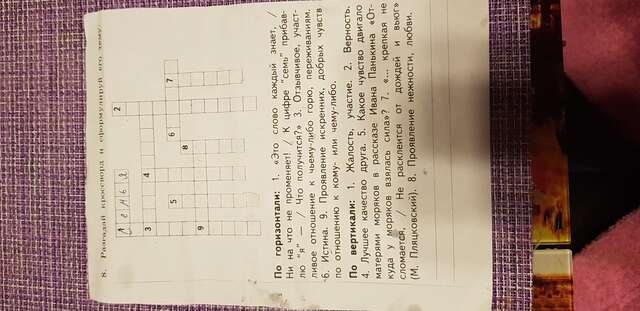 8. Разгадай кроссворд и сформулируй его тему.
1 2
Семья
3 4
5 6 7
8
9
По горизонтали: 1. «Это слово каждый знает, /
Ни на что не променяет! / К цифре "семь" прибав-
лю "я" — / Что получится?» 3. Отзывчивое, участ-
ливое отношение к чьему-либо горю, переживаниям.
6. Истина. 9. Проявление искренних, добрых чувств
по отношению к кому- или чему-либо.
По вертикали: 1. Жалость, участие. 2. Верность.
4. Лучшее качество друга. 5. Какое чувство двигало
матерями моряков в рассказе Ивана Панькина «От-
куда у моряков взялась сила»? 7. «... крепкая не
сломается, / Не расклеится от дождей и вьюг»
(М. Пляцковский). 8. Проявление нежности, любви.